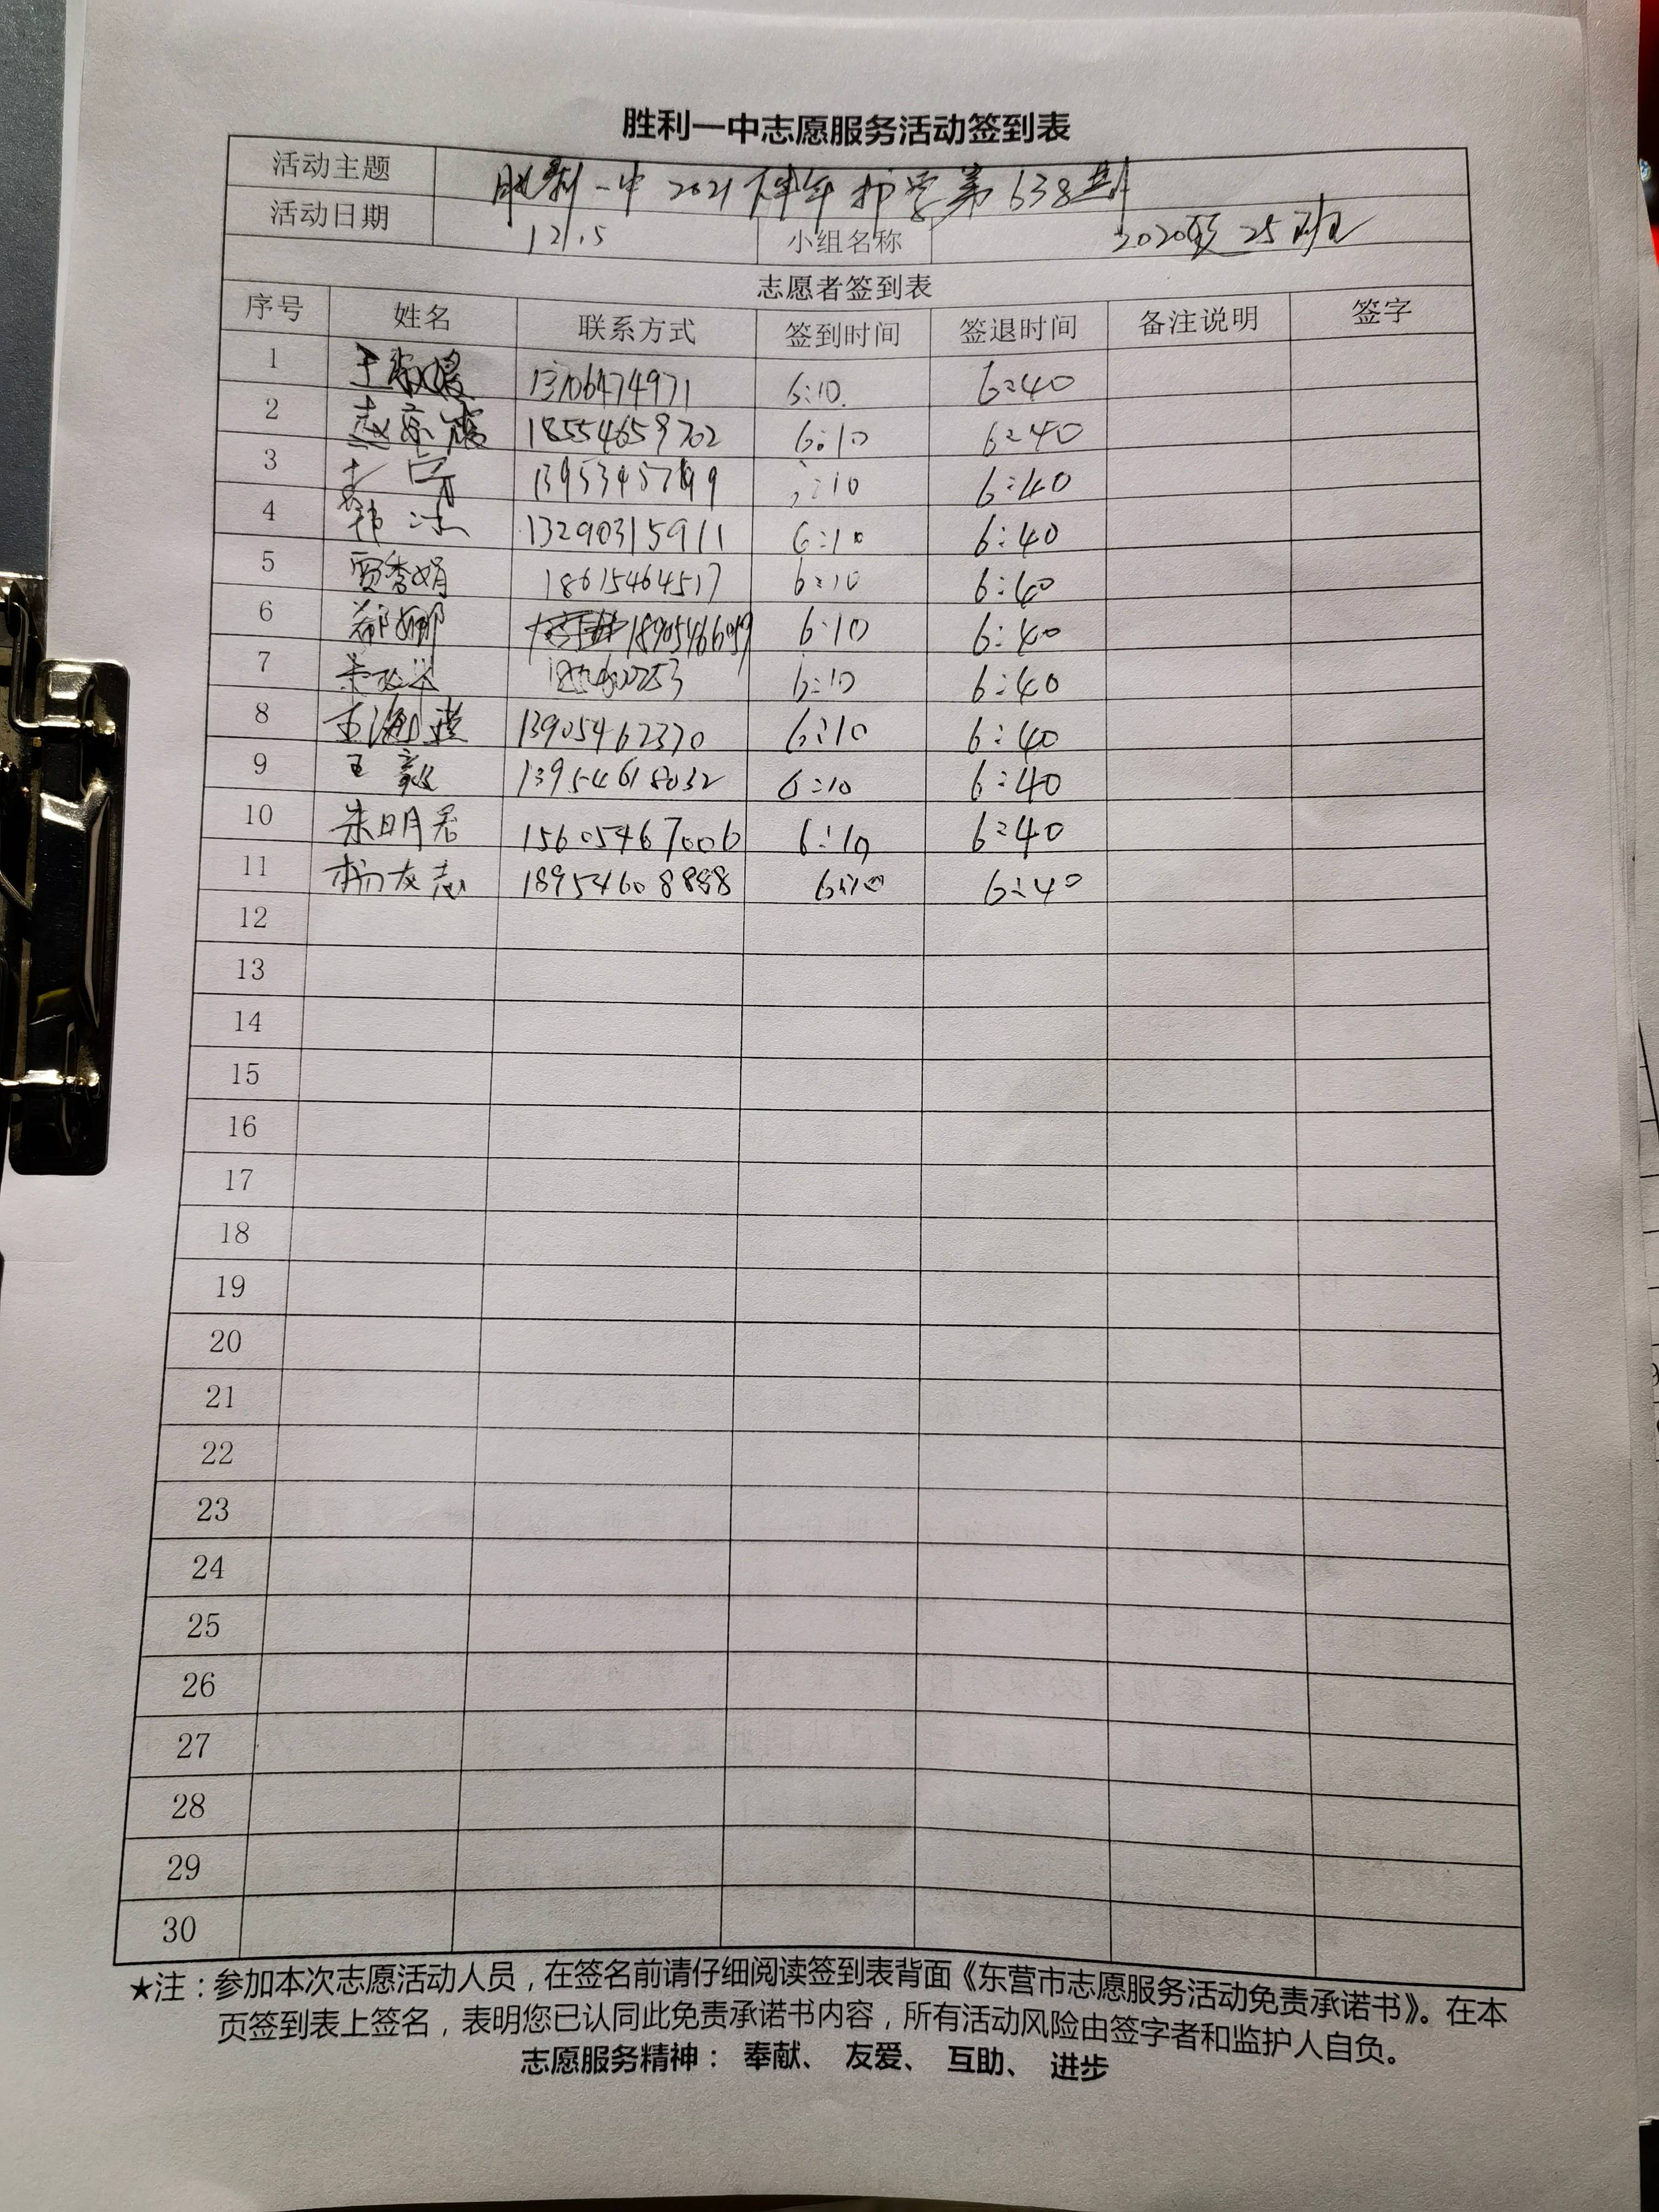 胜利一中志愿服务活动签到表
活动主题 胜利一中2021下半年护学第638期
活动日期 12.15 小组名称 2020级25班
志愿者签到表
序号 姓名 联系方式 签到时间 签退时间 备注说明 签字
1 13706474971 6:10. 6:40
2 18554659702 6:10 6:40
3 :10 6:40
4 韩冰 13290315911 6:10 6:40
5 贾秀娟 18615464517 6:10 6:40
6 6:10 6:40
7 6:10 6:40
8 13905462370 6:10 6:40
9 王毅 13954618032 6:10 6:40
10 朱明君 15605467006 6:10 6:40
11 杨友志 18954608888 6:10 6:40
12
13
14
15
16
17
18
19
20
21
22
23
24
25
26
27
28
29
30
★注：参加本次志愿活动人员，在签名前请仔细阅读签到表背面《东营市志愿服务活动免责承诺书》。在本
页签到表上签名，表明您已认同此免责承诺书内容，所有活动风险由签字者和监护人自负。
志愿服务精神： 奉献、 友爱、 互助、 进步